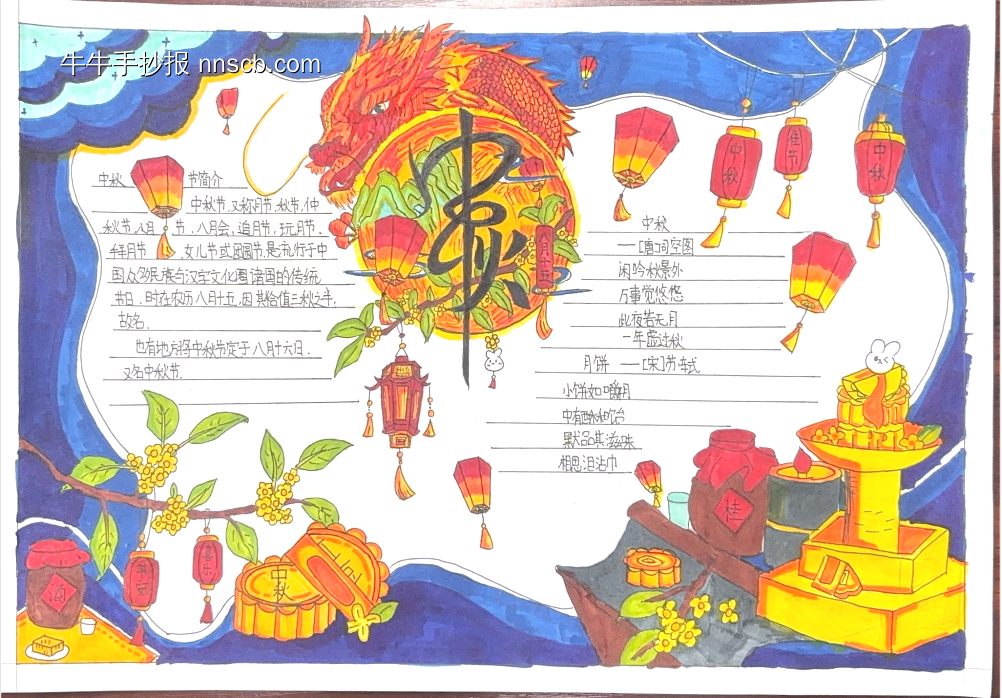 牛牛手抄报 nnscb.com
中秋
中秋 节简介
中秋节,又称月节,秋节,仲
秋节,八月 节,八月会,追月节,玩月节,
拜月节 女儿节或团圆节,是流行于中
国众多民族与汉字文化圈诸国的传统
节日,时在农历八月十五,因其恰值三秋之半,
故名.
也有地方将中秋节定于八月十六日.
又名中秋节.
八月十五
中秋
佳节
中秋
中秋
——[唐]司空图
闲吟秋景外
万事觉悠悠
此夜若无月
一年虚过秋
月饼 ——[宋]苏轼
小饼如嚼月
中有酥和饴
默品其滋味
相思泪沾巾
桂
酒
喜乐
中秋